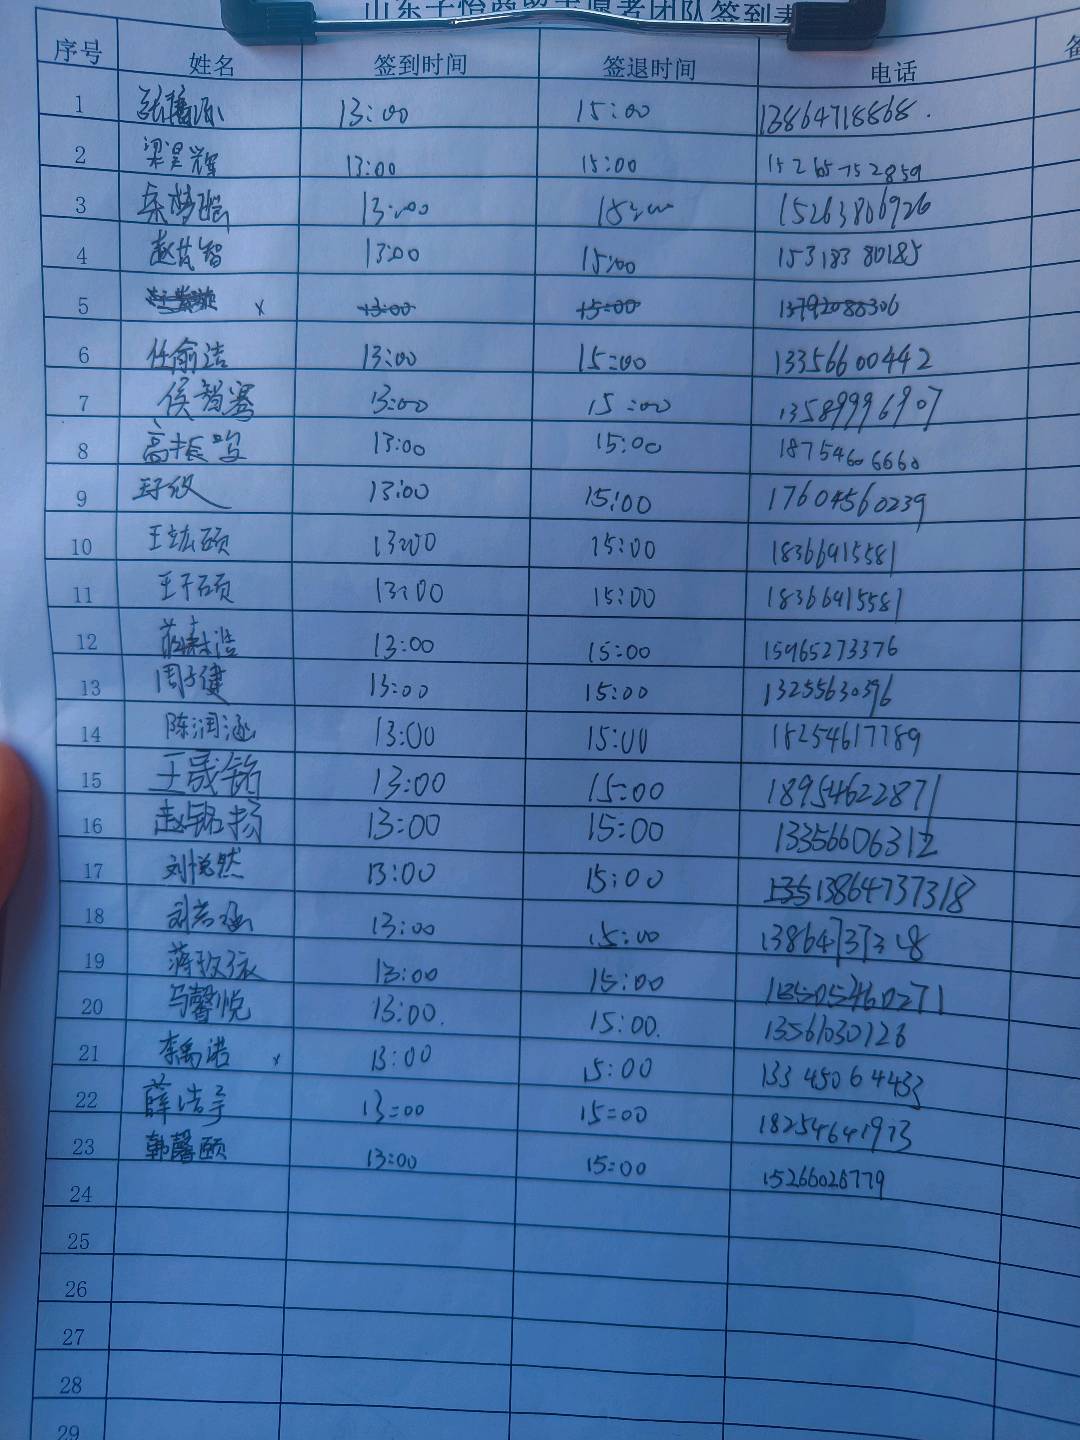 志愿者团队签到表
序号 姓名 签到时间 签退时间 电话
1 13:00 15:00 13864718868.
2 梁昊辉 13:00 15:00 15265752859
3 13:00 15:00 15263806926
4 赵芃智 13:00 15:00 15318380185
5 x 13:00 15:00 13792088306
6 任俞洁 13:00 15:00 13356600442
7 侯智骞 13:00 15:00 13589996907
8 高振鸣 13:00 15:00 18754606660
9 13:00 15:00 17604560239
10 王竑硕 13:00 15:00 18366915581
11 王子硕 13:00 15:00 18366915581
12 浩 13:00 15:00 15965273376
13 周子健 13:00 15:00 13255630396
14 陈润涵 13:00 15:00 18254617789
15 王晟铭 13:00 15:00 18954622871
16 赵铭扬 13:00 15:00 13356606312
17 刘悦然 13:00 15:00 135 13864737318
18 刘若涵 13:00 15:00 13864737318
19 蒋 13:00 15:00 13505460271
20 马馨悦 13:00. 15:00. 13561030126
21 李禹诺 x 13:00 15:00 13345064433
22 薛浩宇 13:00 15:00 18254641973
23 韩馨颐 13:00 15:00 15266028779
24
25
26
27
28
29